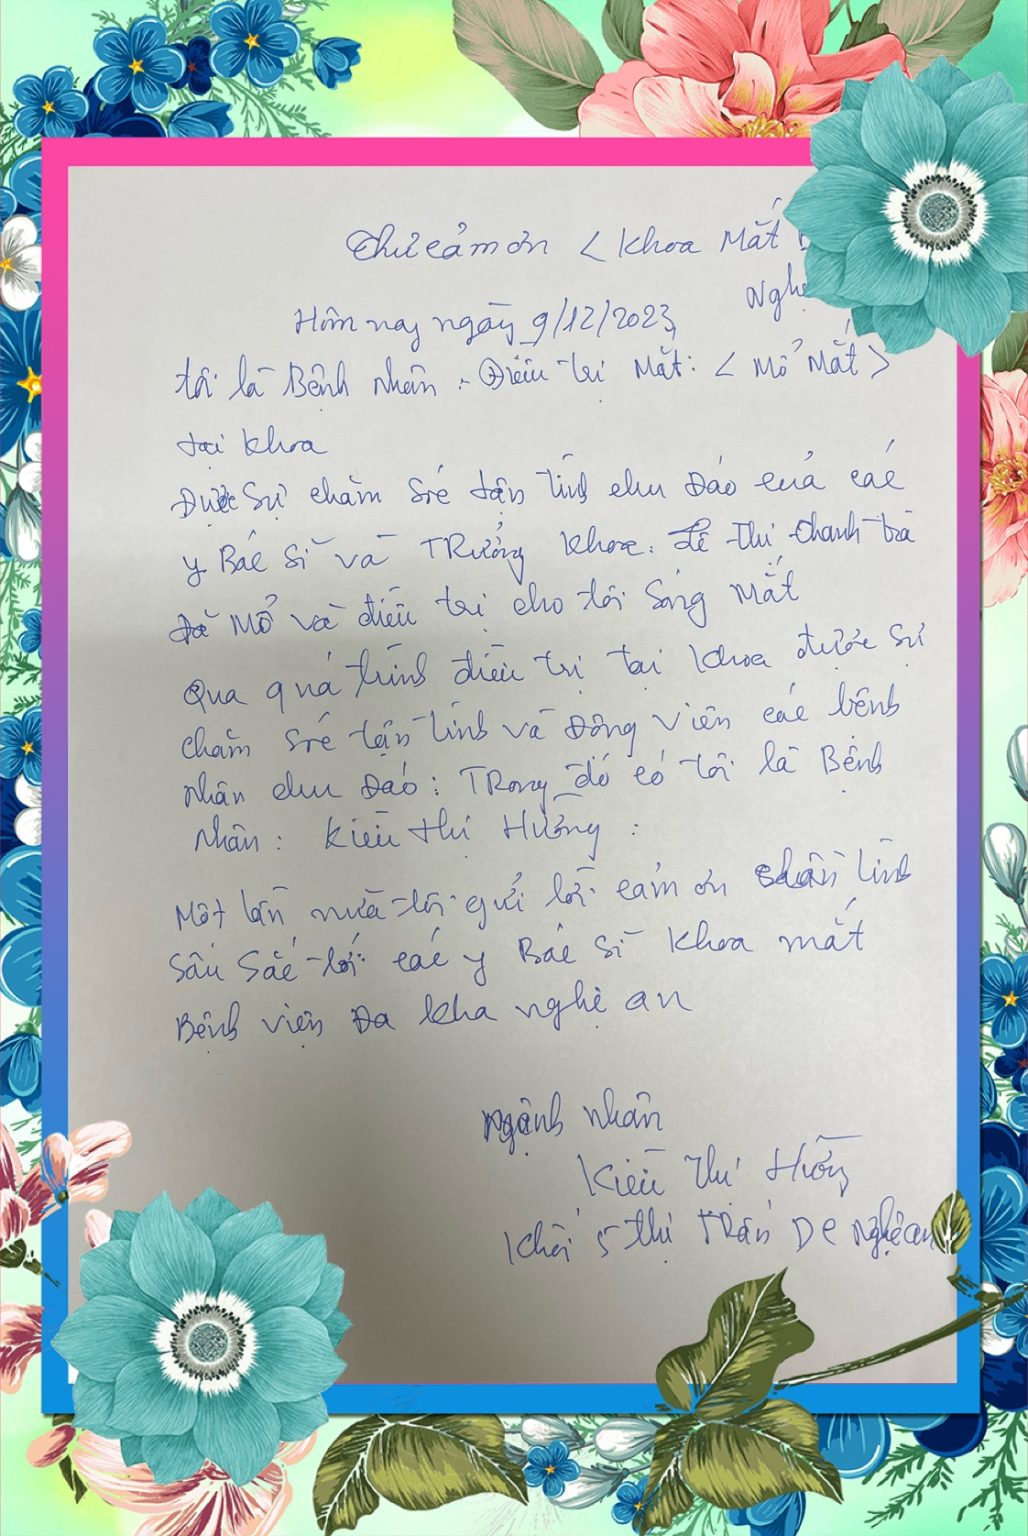 Thư cảm ơn < Khoa Mắt
Nghệ
Hôm nay ngày 9/12/2023
tôi là Bệnh nhân . Điều trị Mắt: < Mổ Mắt >
tại khoa
Được Sự chăm Sóc tận tình chu Đáo của các
y Bác Sĩ và TRưởng Khoa. Lê Thị Thanh Trà
Đã Mổ và điều trị cho tôi Sáng Mắt
Qua quá trình điều trị tại Khoa được sự
chăm Sóc tận tình và Động viên các bệnh
nhân chu Đáo : TRong đó có tôi là Bệnh
Nhân : Kiều thị Hường :
Một lần nữa tôi gửi lời cảm ơn chân tình
sâu sắc tới các y Bác Sĩ Khoa mắt
Bệnh viện Đa kha nghệ an
nhân
Kiều Thị Hường
Khối 5 thị Trấn DC Nghệ an